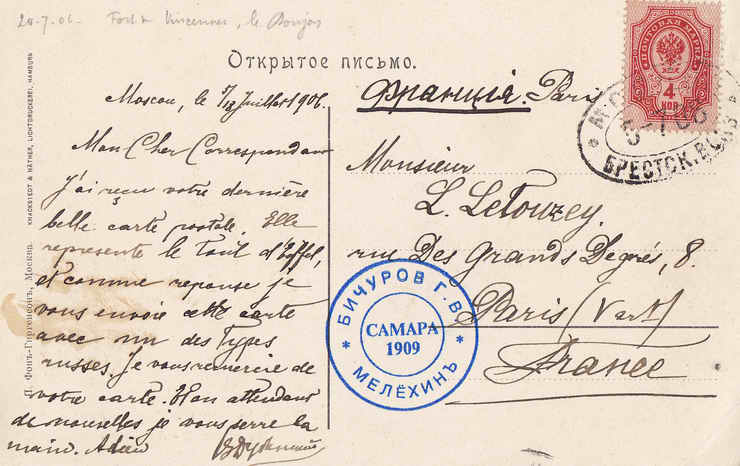 20-7-06. Vincennes, le
Открытое письмо.
Moscou, le 7/ Juillet 1906.
Франція. Paris
Mon Cher Correspondant
J'ai reçu votre dernière
belle carte postale. Elle
represente le tout d'Eiffel,
et comme reponse je
vous envoie cette carte
avec un des types
russes. Je vous remercie de
votre carte. En attendant
de nouvelles je vous serre la
main. Adieu
Monsieur
L. LeTouzey.
rue Des Grands Degrés, 8.
Paris (Vert)
France
ПОЧТОВАЯ МАРКА
4
КОП
5-7 06
БРЕСТСК. ВОКЗ
БИЧУРОВ Г. В.
САМАРА
1909
МЕЛЁХИНЪ
П. фонъ-Гиргенсонъ, Москва.
KNACKSTEDT & NÄTHER, LICHTDRUCKEREI, HAMBURG